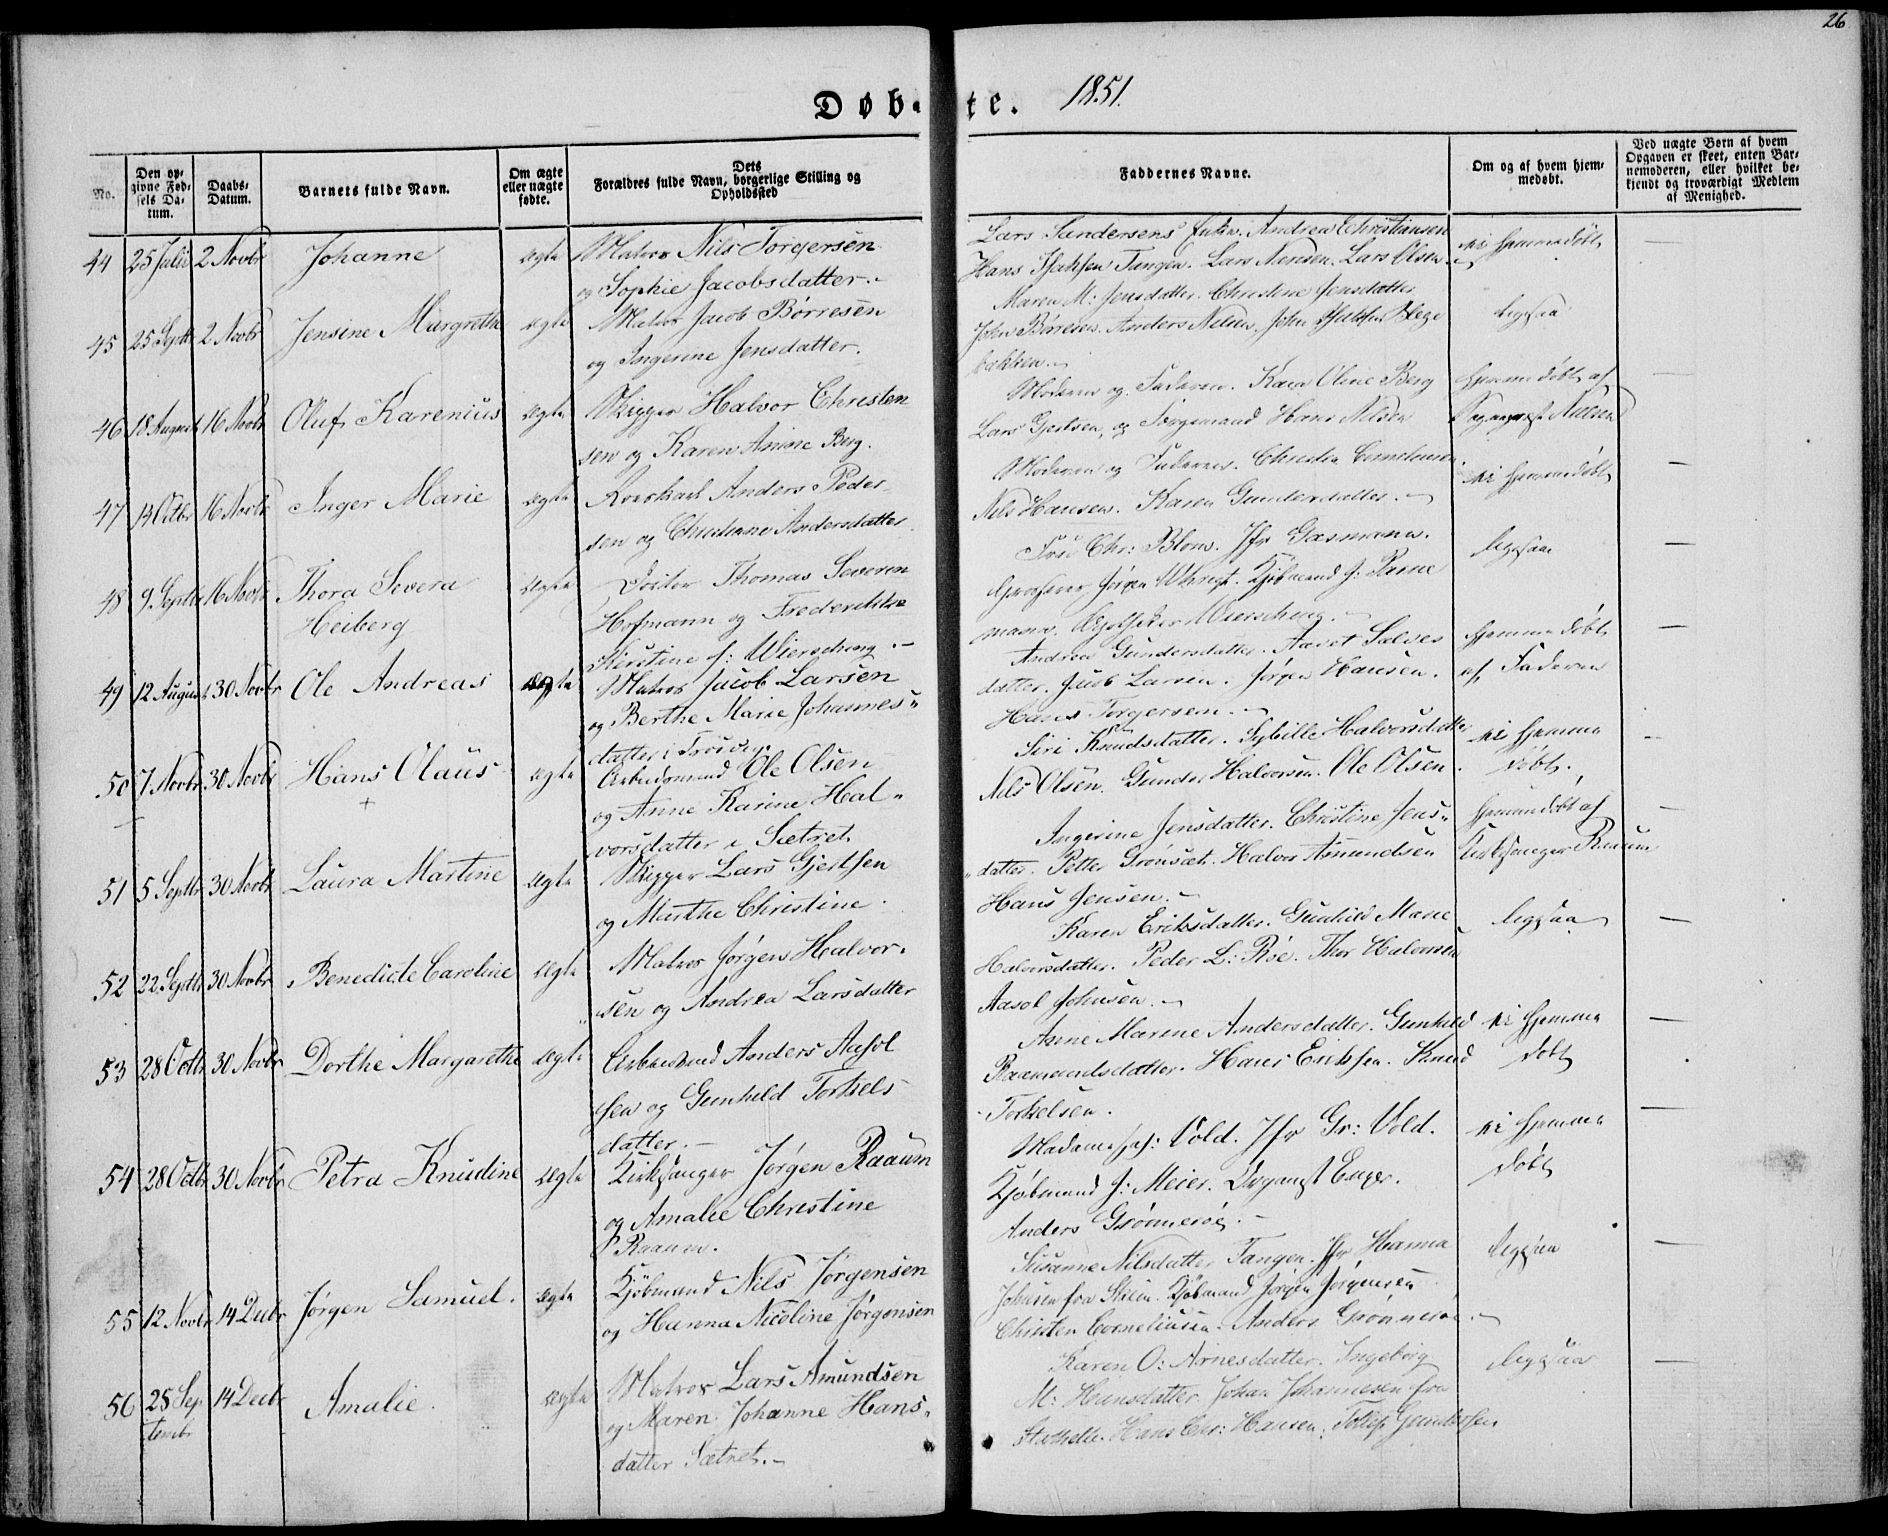 26
Døbte. 1851.
No.
Den opgivne Fødsels Datum.
Daabs-Datum.
Barnets fulde Navn.
Om ægte eller uægte fødte.
Dets Forældres fulde Navn, borgerlige Stilling og Opholdssted
Faddernes Navne.
Om og af hvem hjemmedøbt.
Ved uægte Børn af hvem Opgaven er skeet, enten Barnemoderen, eller hvilket bekjendt og troværdigt Medlem af Menighed.
44 25 Julii 2 Novbr Johanne ægte Matros Nils Torgersen
og Sophie Jacobsdatter.
Lars Sandersens Enke. Andrea Christiansen
Hans Tangen. Lars Nensen. Lars Olsen
ei hjemmedøbt
45 25 Septbr 2 Novbr Jensine Margrethe ægte Matros Jacob Børresen
og Ingerine Jensdatter.
Maren M: Jensdatter. Christine Jensdatter
John Børresen. Anders Nilsen, John Blege
bakken.
ligesaa
46 18 August 16 Novbr Oluf Karenius ægte Skipper Halvor Christen
sen og Karen Anine Berg.
Moderen og Faderen. Karen Oline Berg
Lars Gjertsen, og Sorgemand Hans Nilsen
hjemmedøbt af
Nielsen
47 14 Octbr 16 Novbr Inger Marie ægte Anders Peder
sen og Christiane Andersdatter
Moderen og Faderen. Christen Corneliusen
Nils Hansen. Karen Gundersdatter.
ei hjemmedøbt
48 9 Septbr 16 Novbr Thora Severa
Heiberg
ægte Doctor Thomas Severin
Hofmann og Frederikke
Kirstine f: Wiersching.
Fru Chr: Blom. Jfr Gasmann.
Jørgen Wright. Kjøbmand J: Parne
mann. Apotheker Wiersching.
ligesaa
49 12 August 30 Novbr Ole Andreas ægte Matros Jacob Larsen
og Berthe Marie Johannes
datter i Trosvig.
Andrea Gundersdatter. Aavet Salves
datter. Jacob Larsen. Jørgen Hansen.
Hans Torgersen.
hjemmedøbt
af Faderen
50 7 Novbr 30 Novbr Hans Olaus
+
ægte Arbeidsmand Ole Olsen
og Anne Karine Hal
vorsdatter i Sætret
Siri Knudsdatter. Sybille Halvorsdatter
Nils Olsen. Gunder Halvorsen. Ole Olsen.
ei hjemme
døbt.
51 5 Septbr 30 Novbr Laura Martine ægte Skipper Lars Gjertsen
og Marthe Christine.
Ingerine Jensdatter. Christine Jens
datter. Petter Grønsæt. Halvor Amundsen
Hans Jensen.
hjemmedøbt af
Kirkesanger Raaum
52 22 Septbr 30 Novbr Benedicte Caroline ægte Matros Jørgen Halvor
sen og Andrea Larsdatter
Karen Eriksdatter. Gunhild Marie
Halvorsdatter. Peder L: Röe. Thor Halvorsen
Aasol Johnsen.
ligesaa
53 28 Octbr 30 Novbr Dorthe Margarethe ægte Arbeidsmand Anders Aasol
sen og Gunhild Torkels
datter.
Anne Marine Andersdatter. Gunhild
Raamundsdatter. Hans Eriksen. Knud
Torkelsen.
ei hjemme
døbt
54 28 Octbr 30 Novbr Petra Knudine ægte Kirkesanger Jørgen Raaum
og Amalie Christine
Raaum.
Madame Vold. Jfr Gr: Vold.
Kjøbmand J: Meier. Organist Enger.
Anders Grønnerøe.
ei hjemme
døbt
55 12 Novbr 14 Decbr Jørgen Samuel. ægte Kjøbmand Nils Jørgensen
og Hanna Nicoline Jørgensen
Susanne Nilsdatter Tangen. Jfr Hanna
Johnsen fra Skien. Kjøbmand Jørgen Jørgensen
Christen Corneliusen. Anders Grønnerøe.
ligesaa
56 25 Sep
tembr
14 Decbr Amalie. ægte Matros Lars Amundsen
og Maren Johanne Hans
datter Sætret.
Karen O: Arnesdatter. Ingeborg
M: Hansdatter. Johan Johannesen fra
Stathelle. Hans Chr: Hansen. Tollef Gundersen
ligesaa